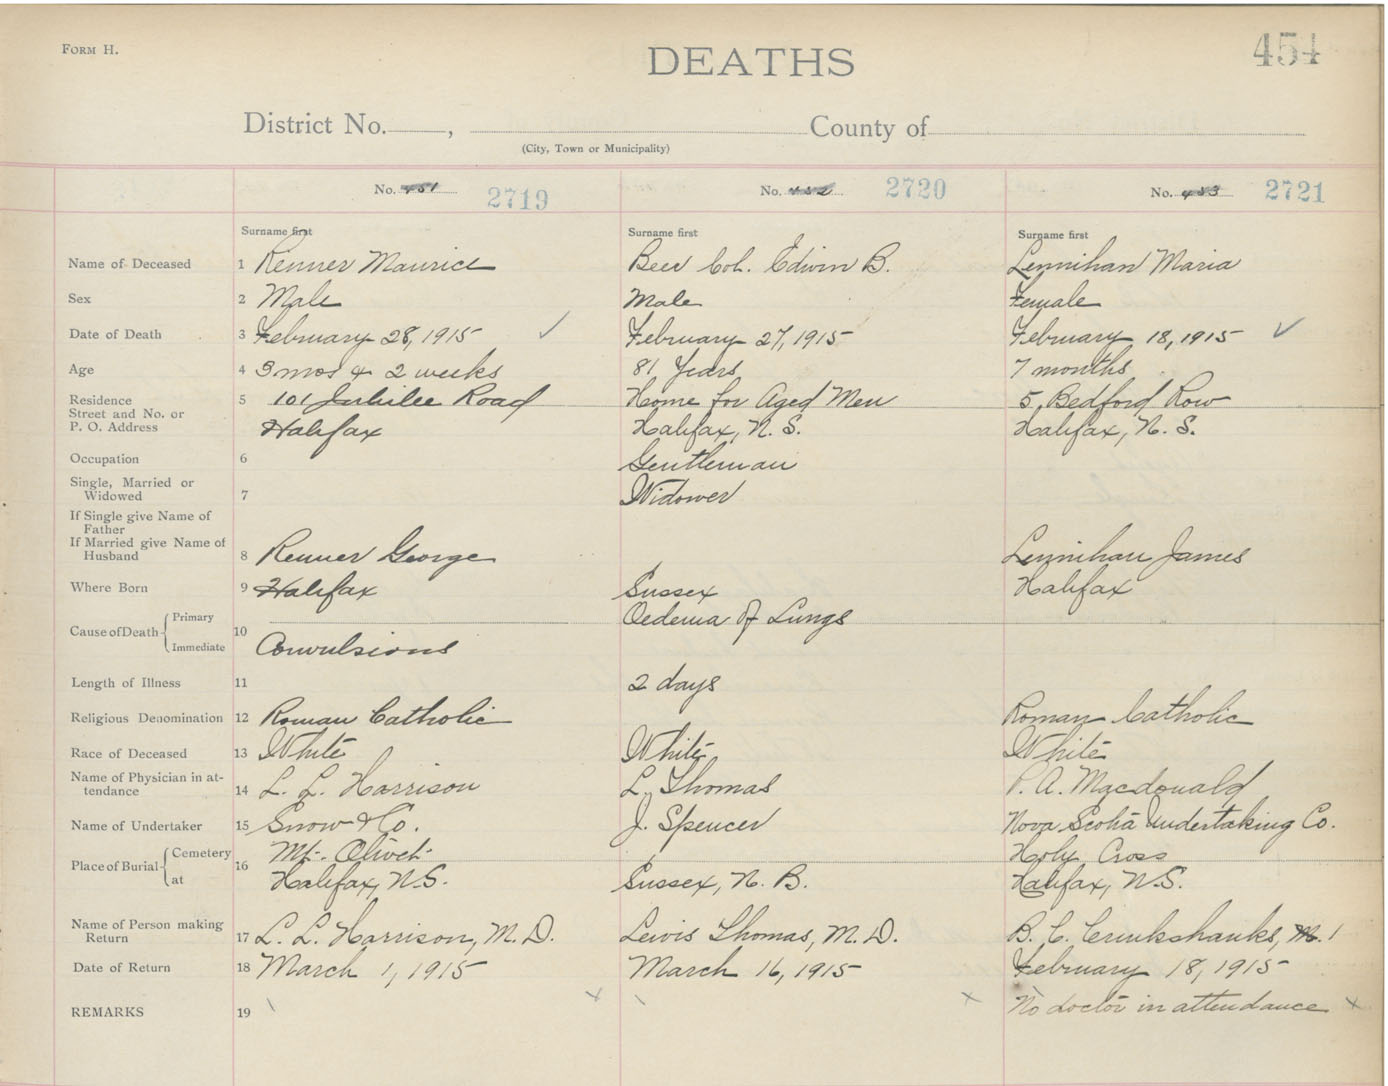 FORM H.
454
DEATHS
District No. , County of
(City, Town or Municipality)
No. 451 2719
No. 452 2720
No. 453 2721
Surname first
Surname first
Surname first
Name of Deceased 1 Renner Maurice
Beer Col. Edwin B.
Lennihan Maria
Sex 2 Male
Male
Female
Date of Death 3 February 28, 1915
February 27, 1915
February 18, 1915
Age 4 3 mos & 2 weeks
81 Years
7 months
Residence
Street and No. or
P. O. Address
5 101 Jubilee Road
Halifax
Home for Aged Men
Halifax, N. S.
5, Bedford Row
Halifax, N. S.
Occupation 6
Gentleman
Single, Married or
Widowed 7
Widower
If Single give Name of
Father
If Married give Name of
Husband 8 Renner George
Lennihan James
Where Born 9 Halifax
Sussex
Halifax
Cause of Death Primary
Immediate
10
Convulsions
Oedema of Lungs
Length of Illness 11
2 days
Religious Denomination 12 Roman Catholic
Roman Catholic
Race of Deceased 13 White
White
White
Name of Physician in at-
tendance 14 L. L. Harrison
L. Thomas
P. A. Macdonald
Name of Undertaker 15 Snow & Co.
J. Spencer
Nova Scotia Undertaking Co.
Place of Burial Cemetery
at
16
Mt. Olivet
Halifax, N.S.
Sussex, N. B.
Holy Cross
Halifax, N.S.
Name of Person making
Return 17 L. L. Harrison, M. D.
Lewis Thomas, M. D.
B. C. Cruikshanks, M.
Date of Return 18 March 1, 1915
March 16, 1915
February 18, 1915
REMARKS 19
No doctor in attendance